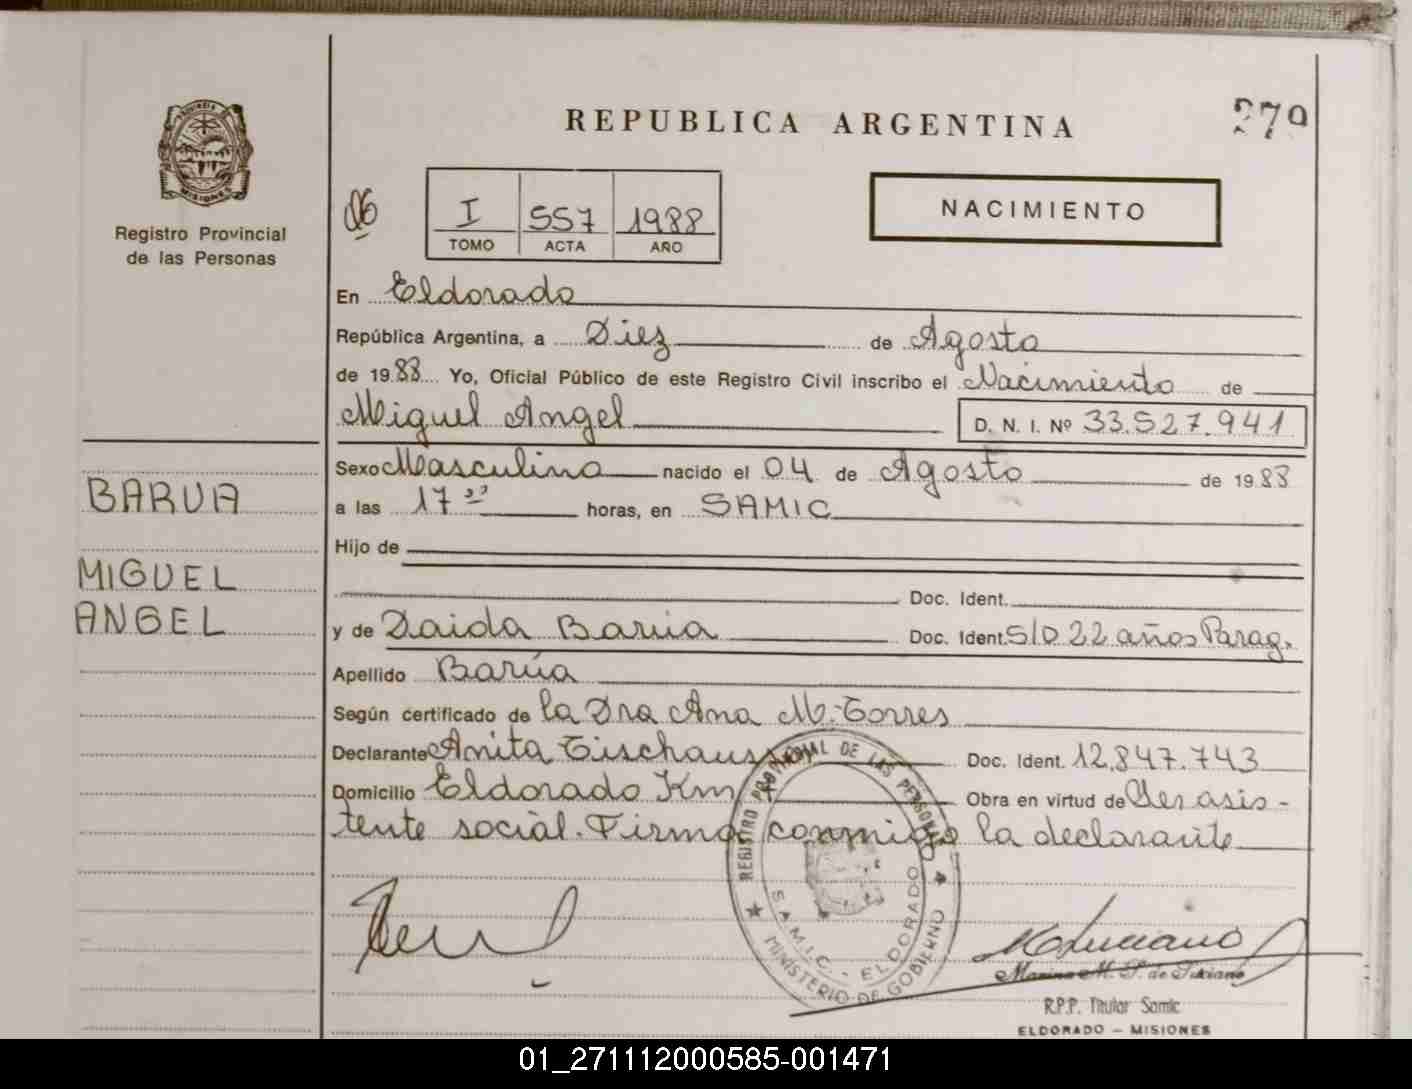 REPUBLICA ARGENTINA
279
PROVINCIA
MISIONES
Registro Provincial
de las Personas
06
I 557 1988
TOMO ACTA AÑO
NACIMIENTO
En Eldorado
República Argentina, a Diez de Agosto
de 1988 Yo, Oficial Público de este Registro Civil inscribo el Nacimiento de
Miguel Angel D. N. I. Nº 33.527.941
Sexo Masculino nacido el 04 de Agosto de 1988
BARUA
a las 17 horas, en SAMIC
Hijo de
MIGUEL
Doc. Ident.
ANGEL
y de Daida Barúa Doc. Ident. S/D 22 años Parag.
Apellido Barúa
Según certificado de la Dra Ana M. Torres
Declarante Anita Doc. Ident. 12.847.743
Domicilio Eldorado Km Obra en virtud de Ser asis-
tente social. Firma conmigo la declarante
REGISTRO PROVINCIAL DE LAS PERSONAS
S.A.M.I.C. - ELDORADO
MINISTERIO DE GOBIERNO
Marina M. de
R.P.P. Titular Samic
ELDORADO – MISIONES
01_271112000585-001471